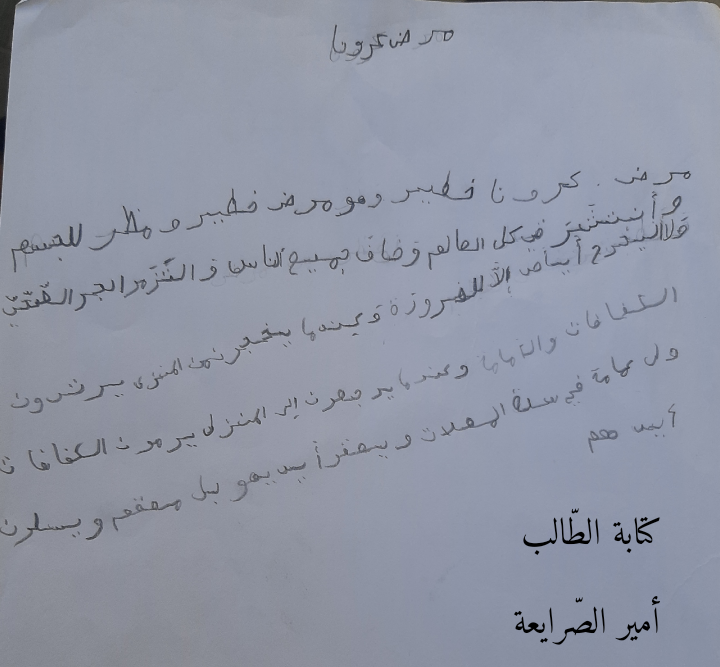 مرض كرونا
مرض. كرونا خطيير وهو مرض خطيير و مظر للجسم
و أنتشر في كل العالم وخاف جميع الناس و التزمو الحجر
ولا ليخرج أيا إلا للضرورة وعيندما يخجرن من المنزل يرتدون
الكفافات والكمامة وعندما يرجعون إلى المنزل يرمون الكفافات
ول مامة في سلة المهملات و يعقم أيديهو بل معقم و يسلون
أيد هم
كتابة الطّالب
أمير الصّرايعة